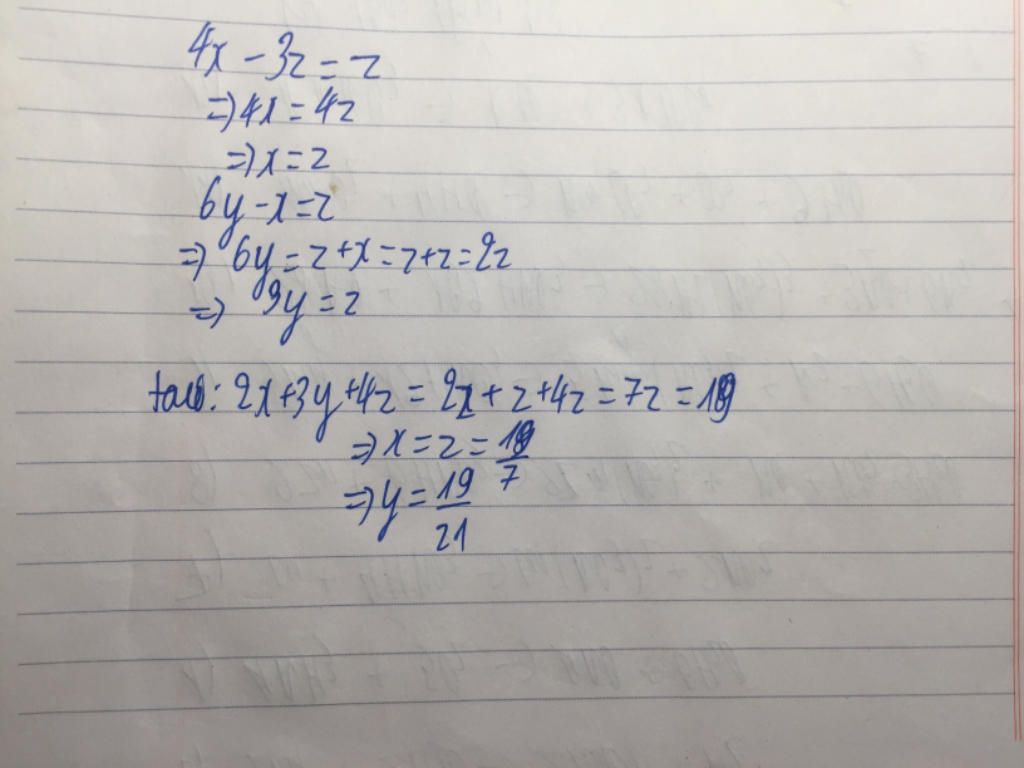 4x - 3z = z
=> 4x = 4z
=> x = z
6y - x = z
=> 6y = z + x = z + z = 2z
=> 3y = z
ta có: 2x + 3y + 4z = 2x + z + 4z = 7z = 19
=> x = z = 19/7
=> y = 19/21